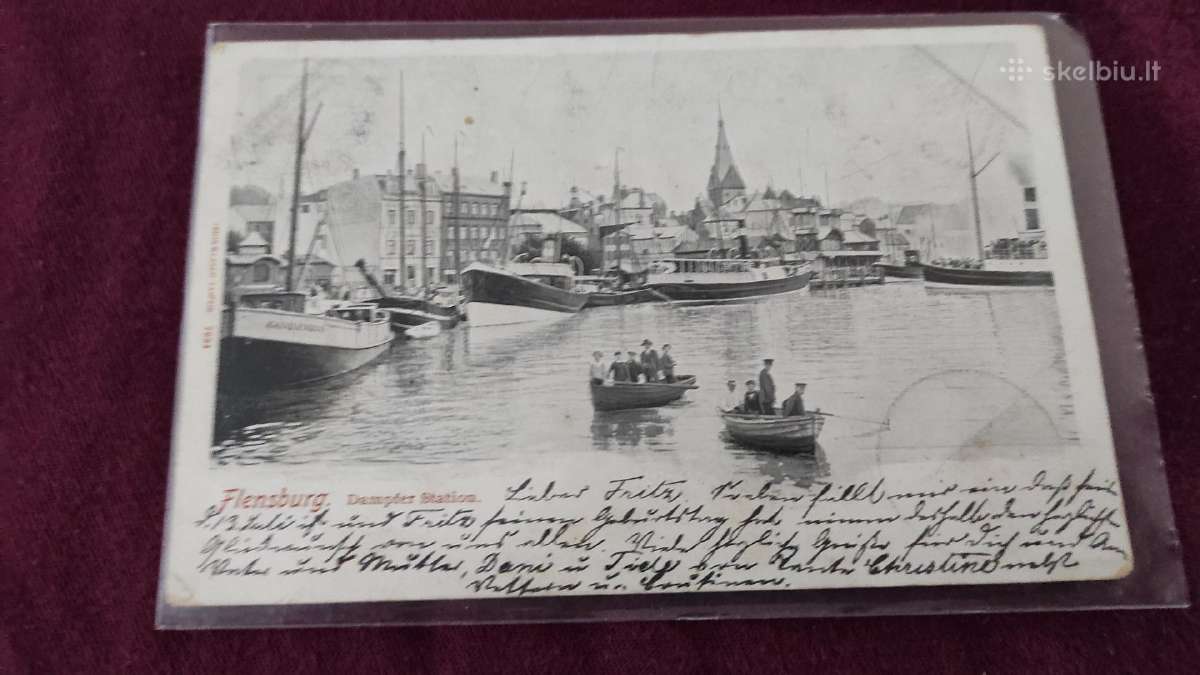 skelbiu.lt
Flensburg. Dampfer Station.
Lieber Fritz. Soeben fällt uns ein daß heute
d. 13. Juli ist und Fritz seinen Geburtstag hat, nimm deshalb den herzlichsten
Glückwunsch von uns allen. Viele herzliche Grüße für Dich und
Vater und Mutter, u von Tante Christine nebst
Vettern u. Cousinen.